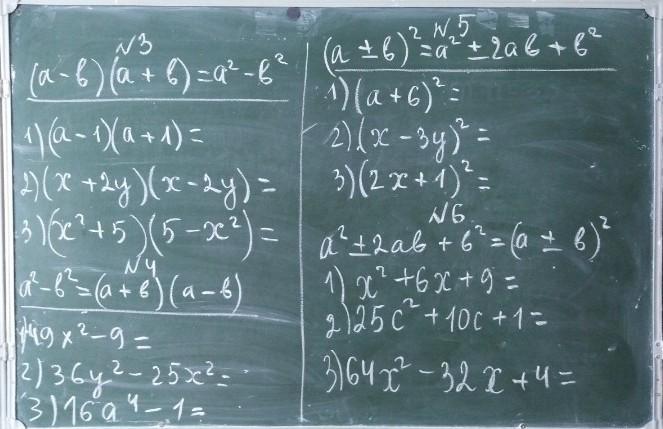 N3
(a - b)(a + b) = a² - b²
1) (a - 1)(a + 1) =
2) (x + 2y)(x - 2y) =
3) (x² + 5)(5 - x²) =
N4
a² - b² = (a + b)(a - b)
1) 49x² - 9 =
2) 36y² - 25x² =
3) 16a⁴ - 1 =
N5
(a ± b)² = a² ± 2ab + b²
1) (a + 6)² =
2) (x - 3y)² =
3) (2x + 1)² =
N6
a² ± 2ab + b² = (a ± b)²
1) x² + 6x + 9 =
2) 25c² + 10c + 1 =
3) 64x² - 32x + 4 =